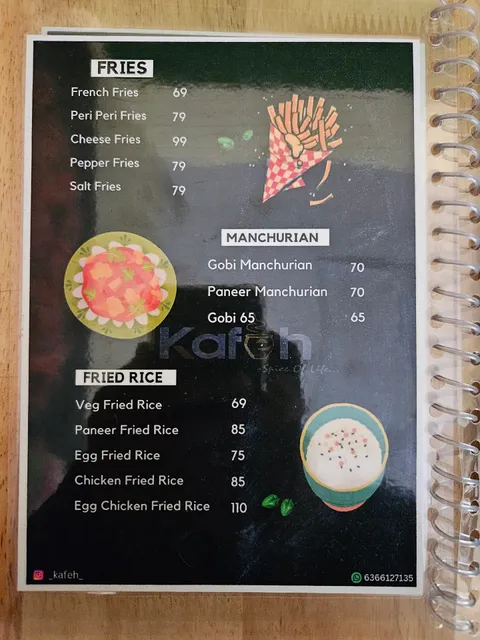 FRIES
French Fries 69
Peri Peri Fries 79
Cheese Fries 99
Pepper Fries 79
Salt Fries 79
MANCHURIAN
Gobi Manchurian 70
Paneer Manchurian 70
Gobi 65 65
Kafeh
-Spice Of Life...
FRIED RICE
Veg Fried Rice 69
Paneer Fried Rice 85
Egg Fried Rice 75
Chicken Fried Rice 85
Egg Chicken Fried Rice 110
_kafeh_ 6366127135